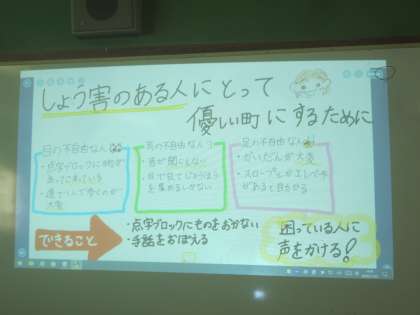 しょう害のある人にとって
優しい町にするために
目の不自由な人
・点字ブロックに物が
・道で1人で歩くのが
大変
耳の不自由な人
・音が聞こえない
・目で見てじょうほう
を集めるしかない
足の不自由な人
・かいだんが大変
・スロープとかエレベータ
があると助かる
できること
・点字ブロックにものをおかない
・手話をおぼえる
困っている人に
声をかける!